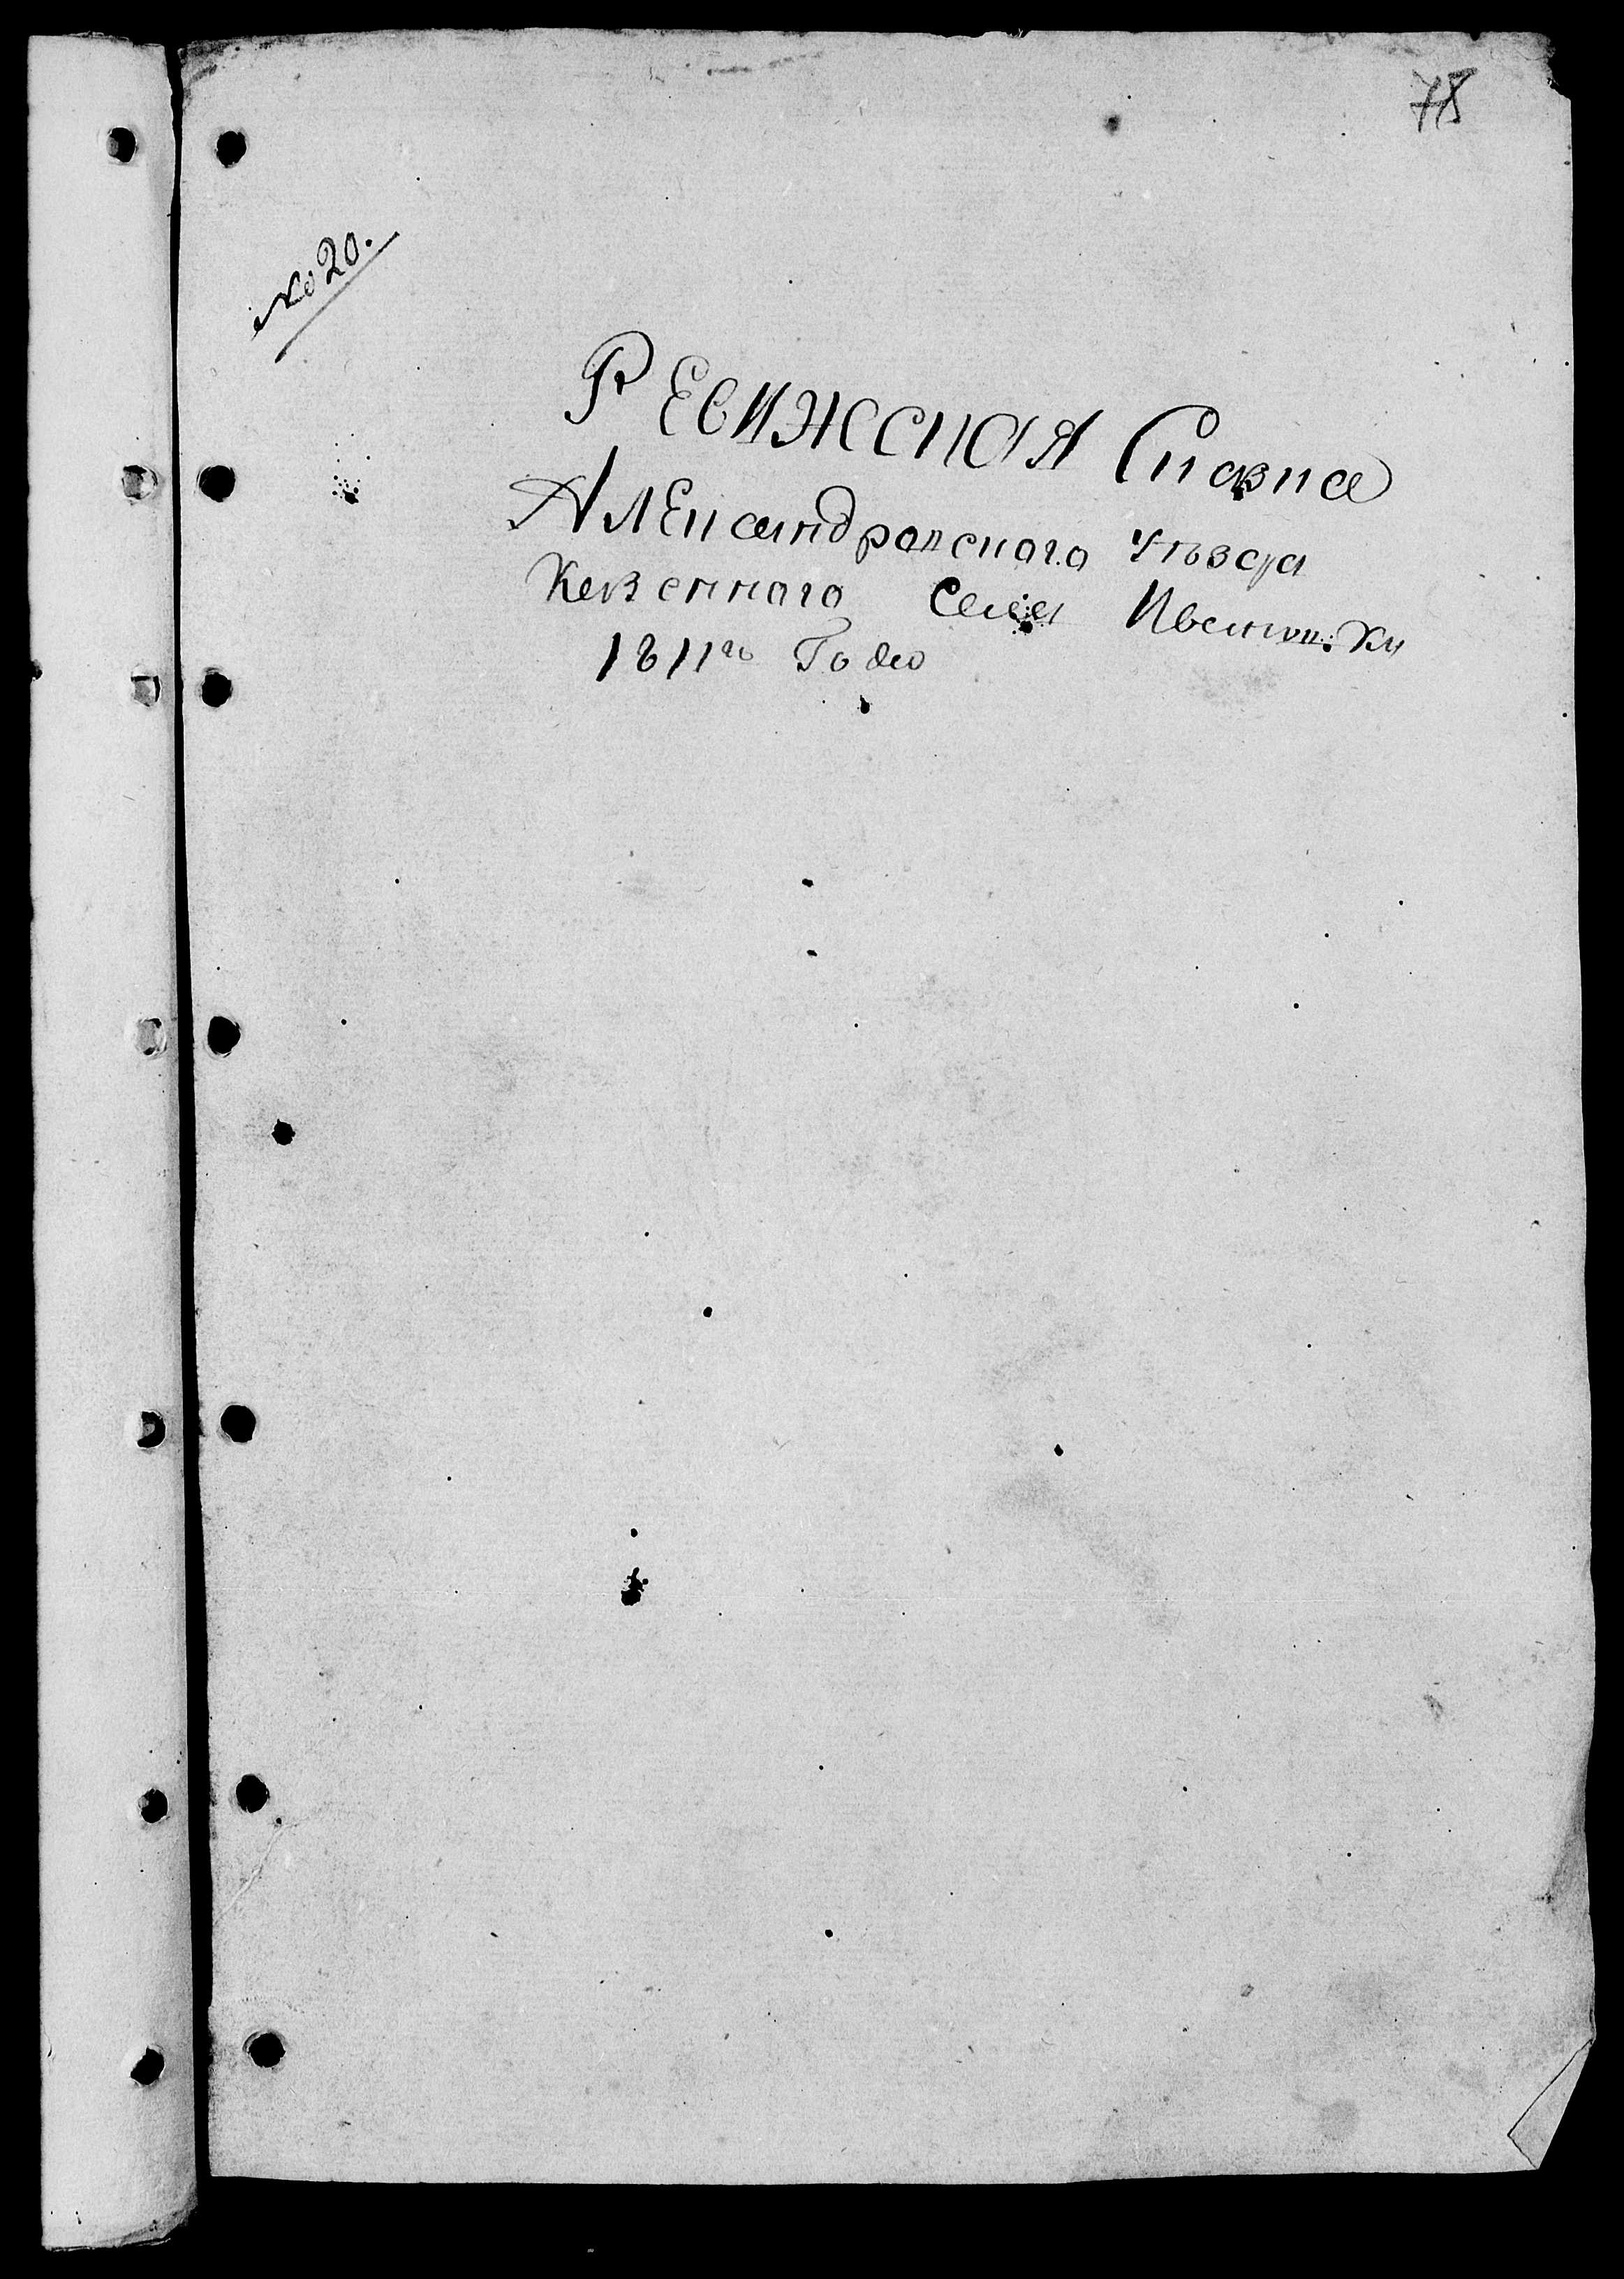 78
№ 20.
Ревижская Скаска
Александровского уѣзда
Казенного Села Ивановки
1811го Года